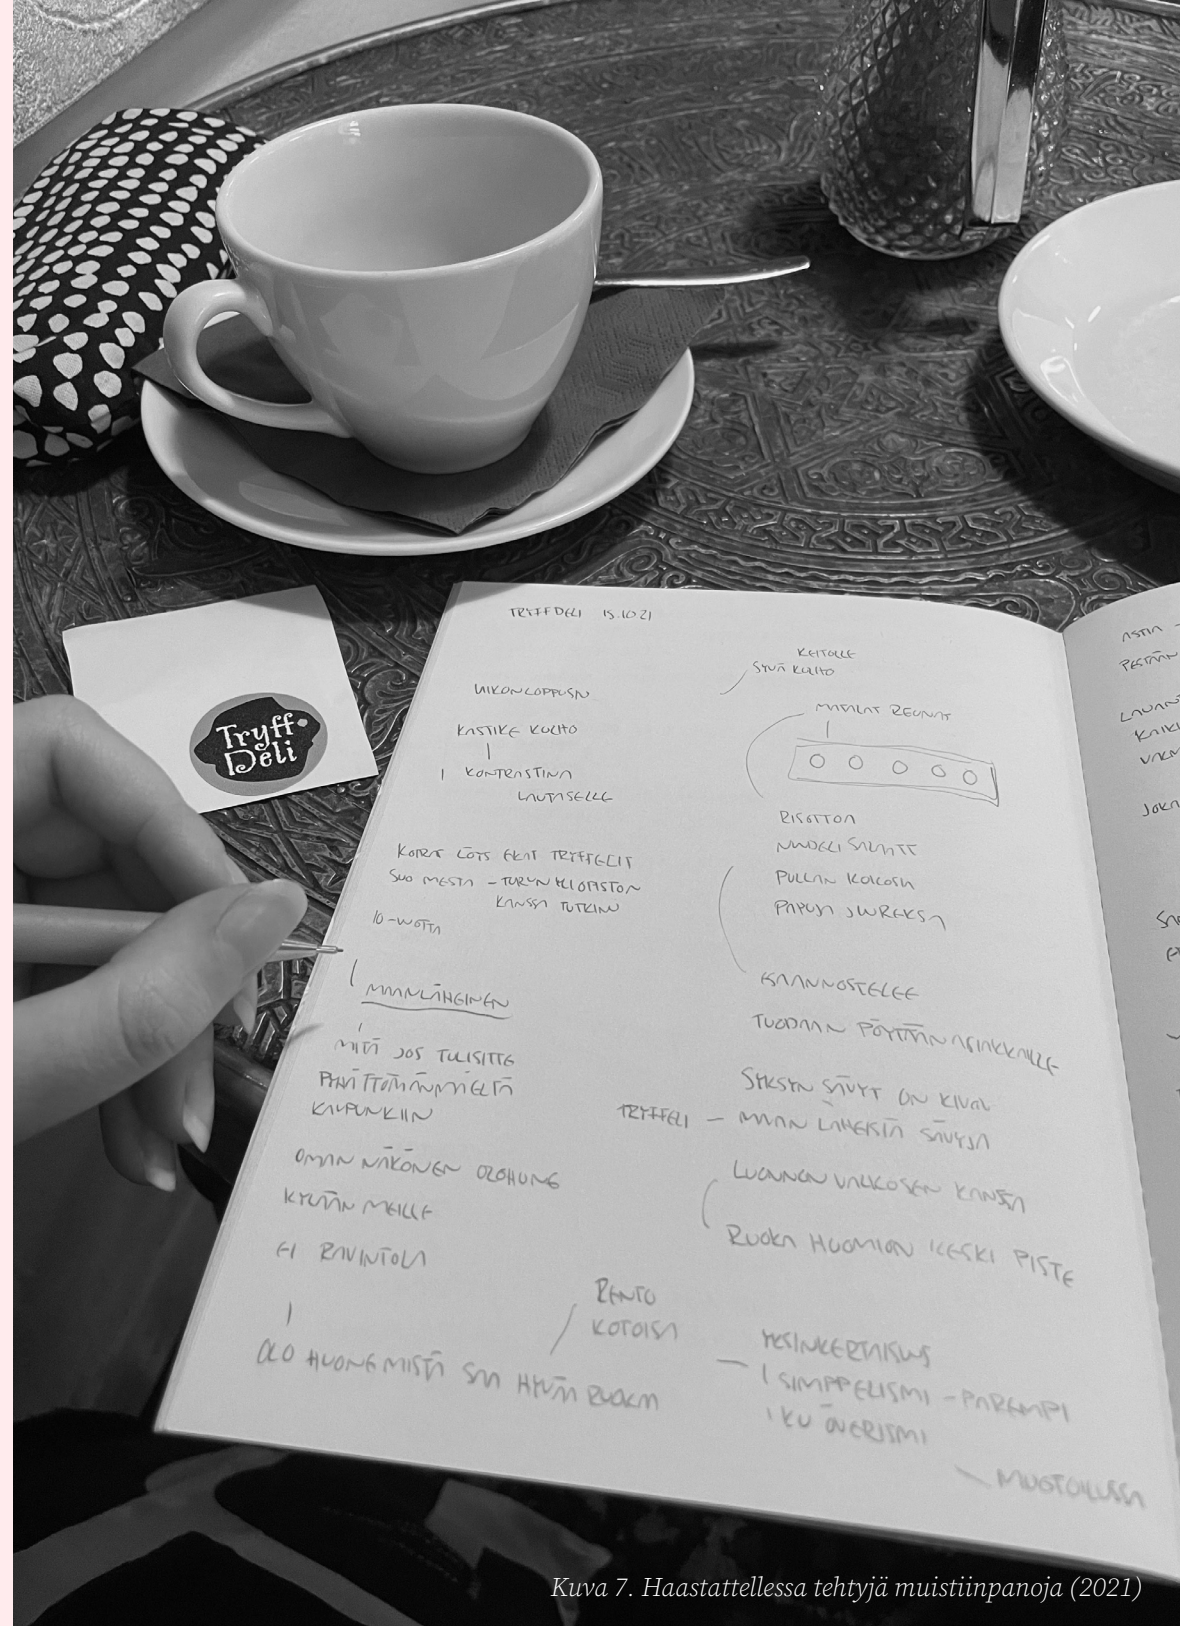 Tryff
Deli
TRYFFDELI 15.10.21
VIIKONLOPPUSN
KASTIKE KULHO
KONTRASTINA
LAUTASELLE
KOIRAT LÖYS EKAT TRYFFELIT
SUOMESTA - TURUN YLIOPISTON
KANSSA TUTKINU
10-VUOTTA
MAANLÄHEINEN
MITÄ JOS TULISITTE
KAUPUNKIIN
OMAN NÄKÖNEN OLOHUNE
KYLÄÄN MEILLE
EI RAVINTOLA
OLOHUONE MISTÄ SAA HYVÄÄ RUOKAA
RENTO
KOTOISA
KEITOLLE
SYVÄ KULHO
MATALAT REUNAT
RISOTTOA
NUUDELI SALAATIT
PULLAN KOKOSIA
PAPUJA JUUREKSIA
ISAANNOSTELEE
TUODAAN PÖYTÄÄN ASIAKKAILLE
SYKSYN SÄVYT ON KIVAT
TRYFFELI - MAAN LÄHEISIÄ SÄVYJÄ
LUONNON VALKOSEN KANSSA
RUOKA HUOMION KESKI PISTE
YKSINKERTAISUUS
SIMPPELISMI - PAREMPI
MUOTOILUSSA
ASTIA -
PESTÄÄN
JOKA
Kuva 7. Haastattellessa tehtyjä muistiinpanoja (2021)